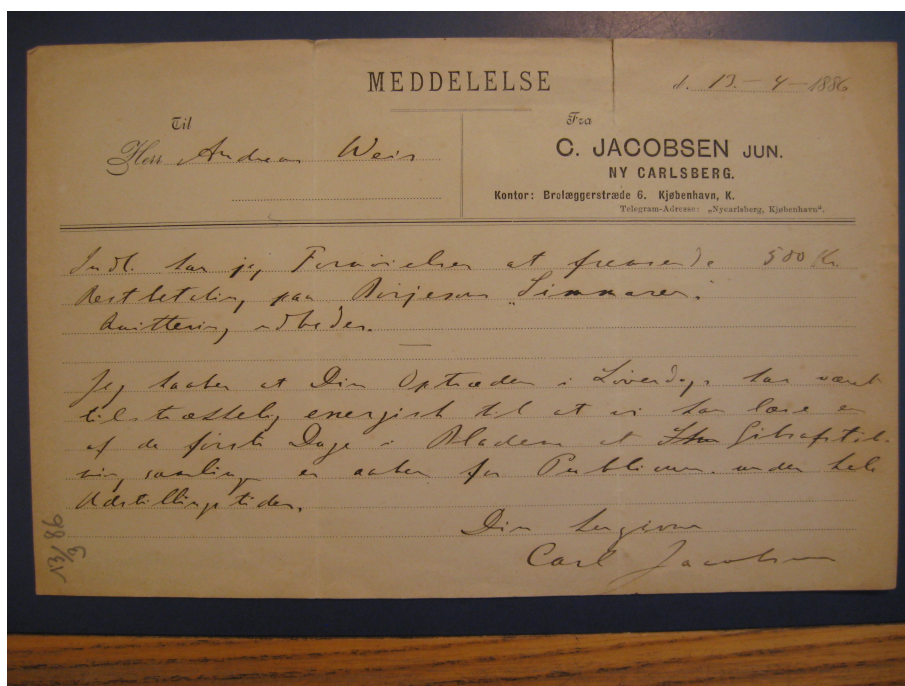 MEDDELELSE
d. 13.-4-1886
Til
Herr Andreas Weis
Fra
C. JACOBSEN JUN.
NY CARLSBERG.
Kontor: Brolæggerstræde 6. Kjøbenhavn, K.
Telegram-Adresse: „Nycarlsberg, Kjøbenhavn".
Indl. har jeg Fornøielsen at fremsende 500 Kr.
Restbetaling paa Börjesons „Simmaren".
Quittering udbedes.
Jeg haaber at Din Optræden i Löverdags har været
tilstrækkelig energisk til at vi kan læse en
af de første Dage i Bladene at Gibsafstöb-
ningsamlingen er aaben for Publicum under hele
Udstillingstiden.
Din hengivne
Carl Jacobsen
13/3 86